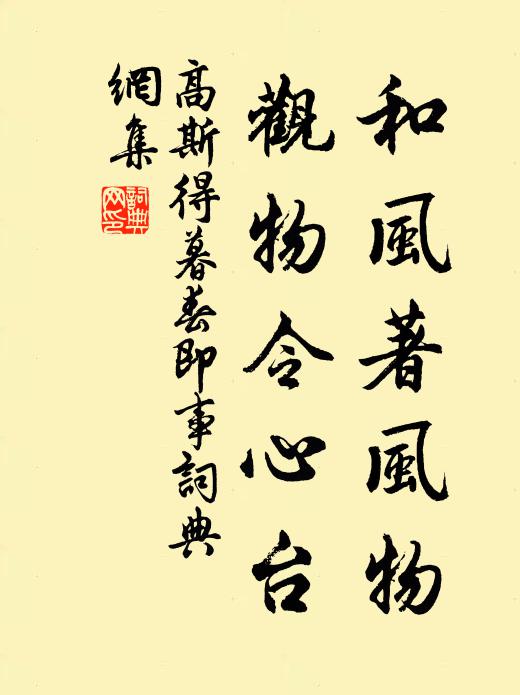 和風著風物
觀物令心台
高斯得暮春即事詞典
網集
詞典網印